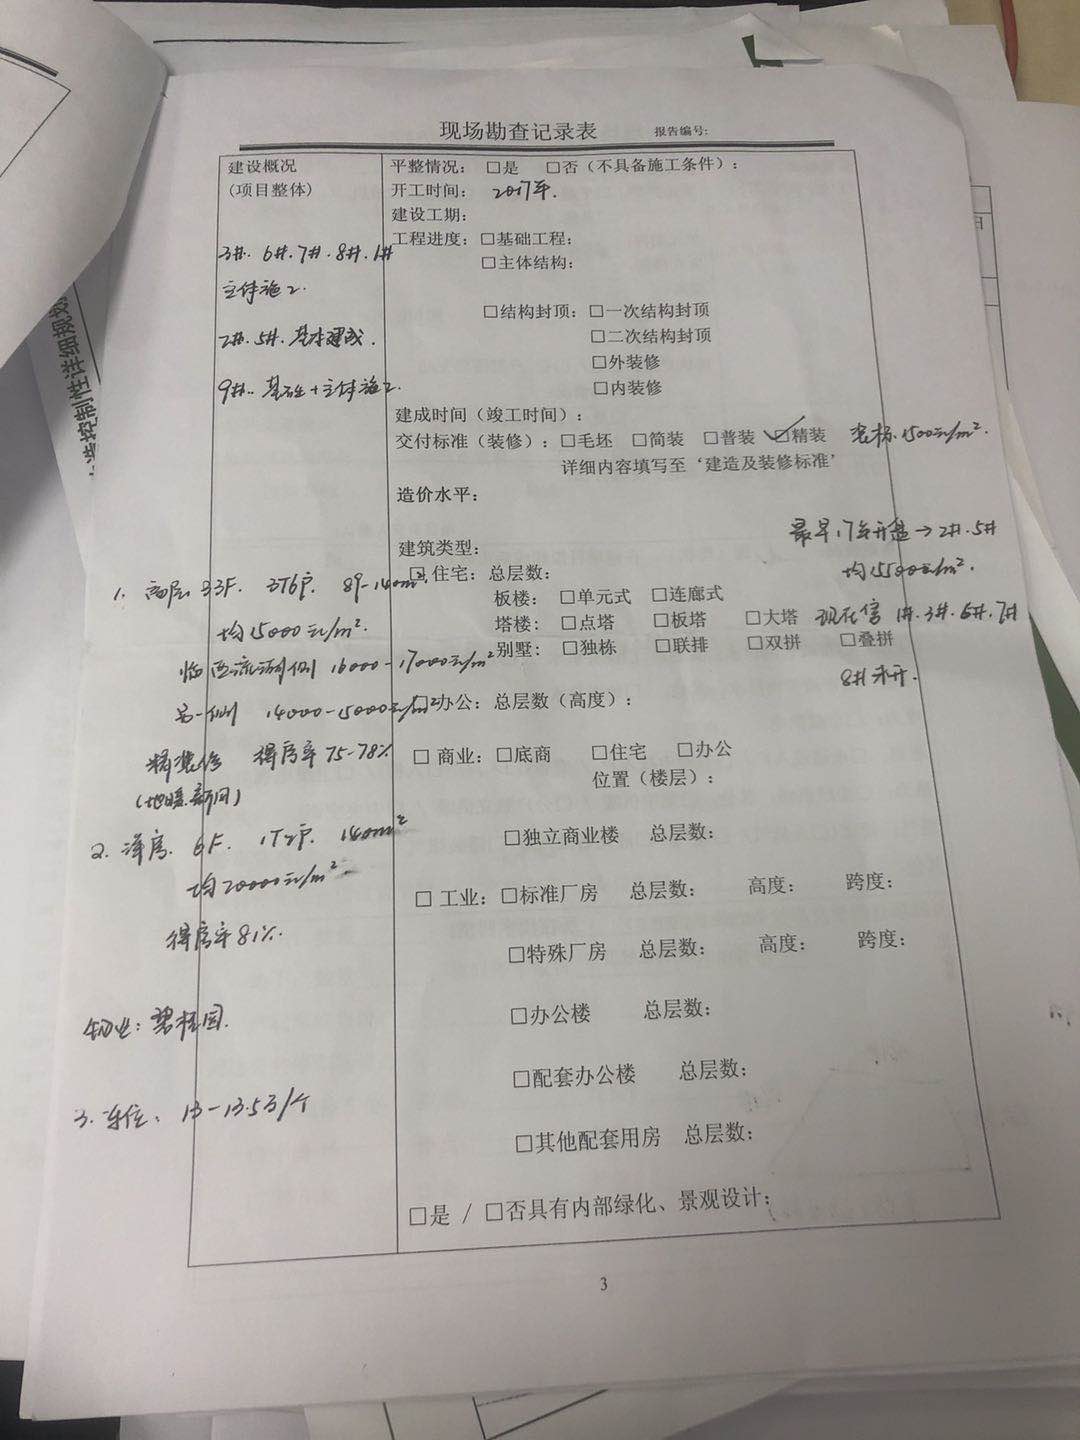 现场勘查记录表 报告编号:
建设概况
(项目整体)
平整情况： □是 □否（不具备施工条件）：
开工时间： 2017年.
建设工期：
工程进度：□基础工程：
□主体结构：
3#. 6#. 7#. 8#. 1#
主体施工.
□结构封顶：□一次结构封顶
□二次结构封顶
2#. 5#. 基本建成.
□外装修
□内装修
9#.. 基础+主体施工.
建成时间（竣工时间）：
交付标准（装修）：□毛坯 □简装 □普装 ☑精装 装标.1500元/m².
详细内容填写至‘建造及装修标准’
造价水平：
最早17年开盘→2#.5#
均15500元/m².
建筑类型：
□住宅：总层数：
板楼： □单元式 □连廊式
塔楼：□点塔 □板塔 □大塔 现在售 1#.3#.6#.7#
别墅: □独栋 □联排 □双拼 □叠拼
8#未开.
1. 高层 33F. 3T6户. 89-140m².
均15000元/m².
临西流湖侧 16000-17000元/m²
另一侧 14000-15000元/m²
□办公：总层数（高度）：
精装修 得房率75-78%
(地暖.新风)
□ 商业：□底商 □住宅 □办公
位置（楼层）：
□独立商业楼 总层数：
2. 洋房. 6F. 1T2户. 140m²
均20000元/m².
得房率81%.
□ 工业：□标准厂房 总层数： 高度： 跨度：
□特殊厂房 总层数： 高度： 跨度：
□办公楼 总层数：
物业：碧桂园.
□配套办公楼 总层数：
3. 车位：13-13.5万/个
□其他配套用房 总层数：
□是 / □否具有内部绿化、景观设计：
3